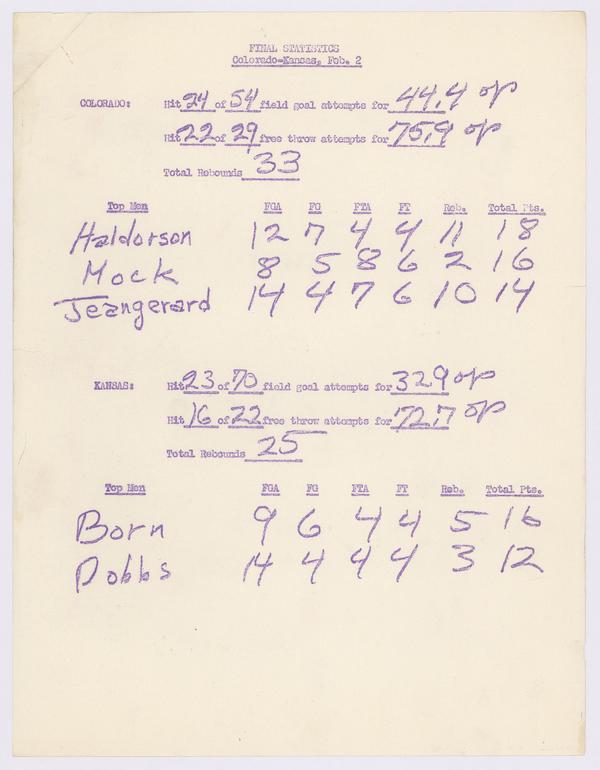 FINAL STATISTICS
Colorado-Kansas, Feb. 2
COLORADO: Hit 24 of 54 field goal attempts for 44.4 %
Hit 22 of 29 free throw attempts for 75.9 %
Total Rebounds 33
Top Men FGA FG FTA FT Reb. Total Pts.
Haldorson 12 7 4 4 11 18
Mock 8 5 8 6 2 16
Jeangerard 14 4 7 6 10 14
KANSAS: Hit 23 of 70 field goal attempts for 32.9 %
Hit 16 of 22 free throw attempts for 72.7 %
Total Rebounds 25
Top Men FGA FG FTA FT Reb. Total Pts.
Born 9 6 4 4 5 16
Dobbs 14 4 4 4 3 12